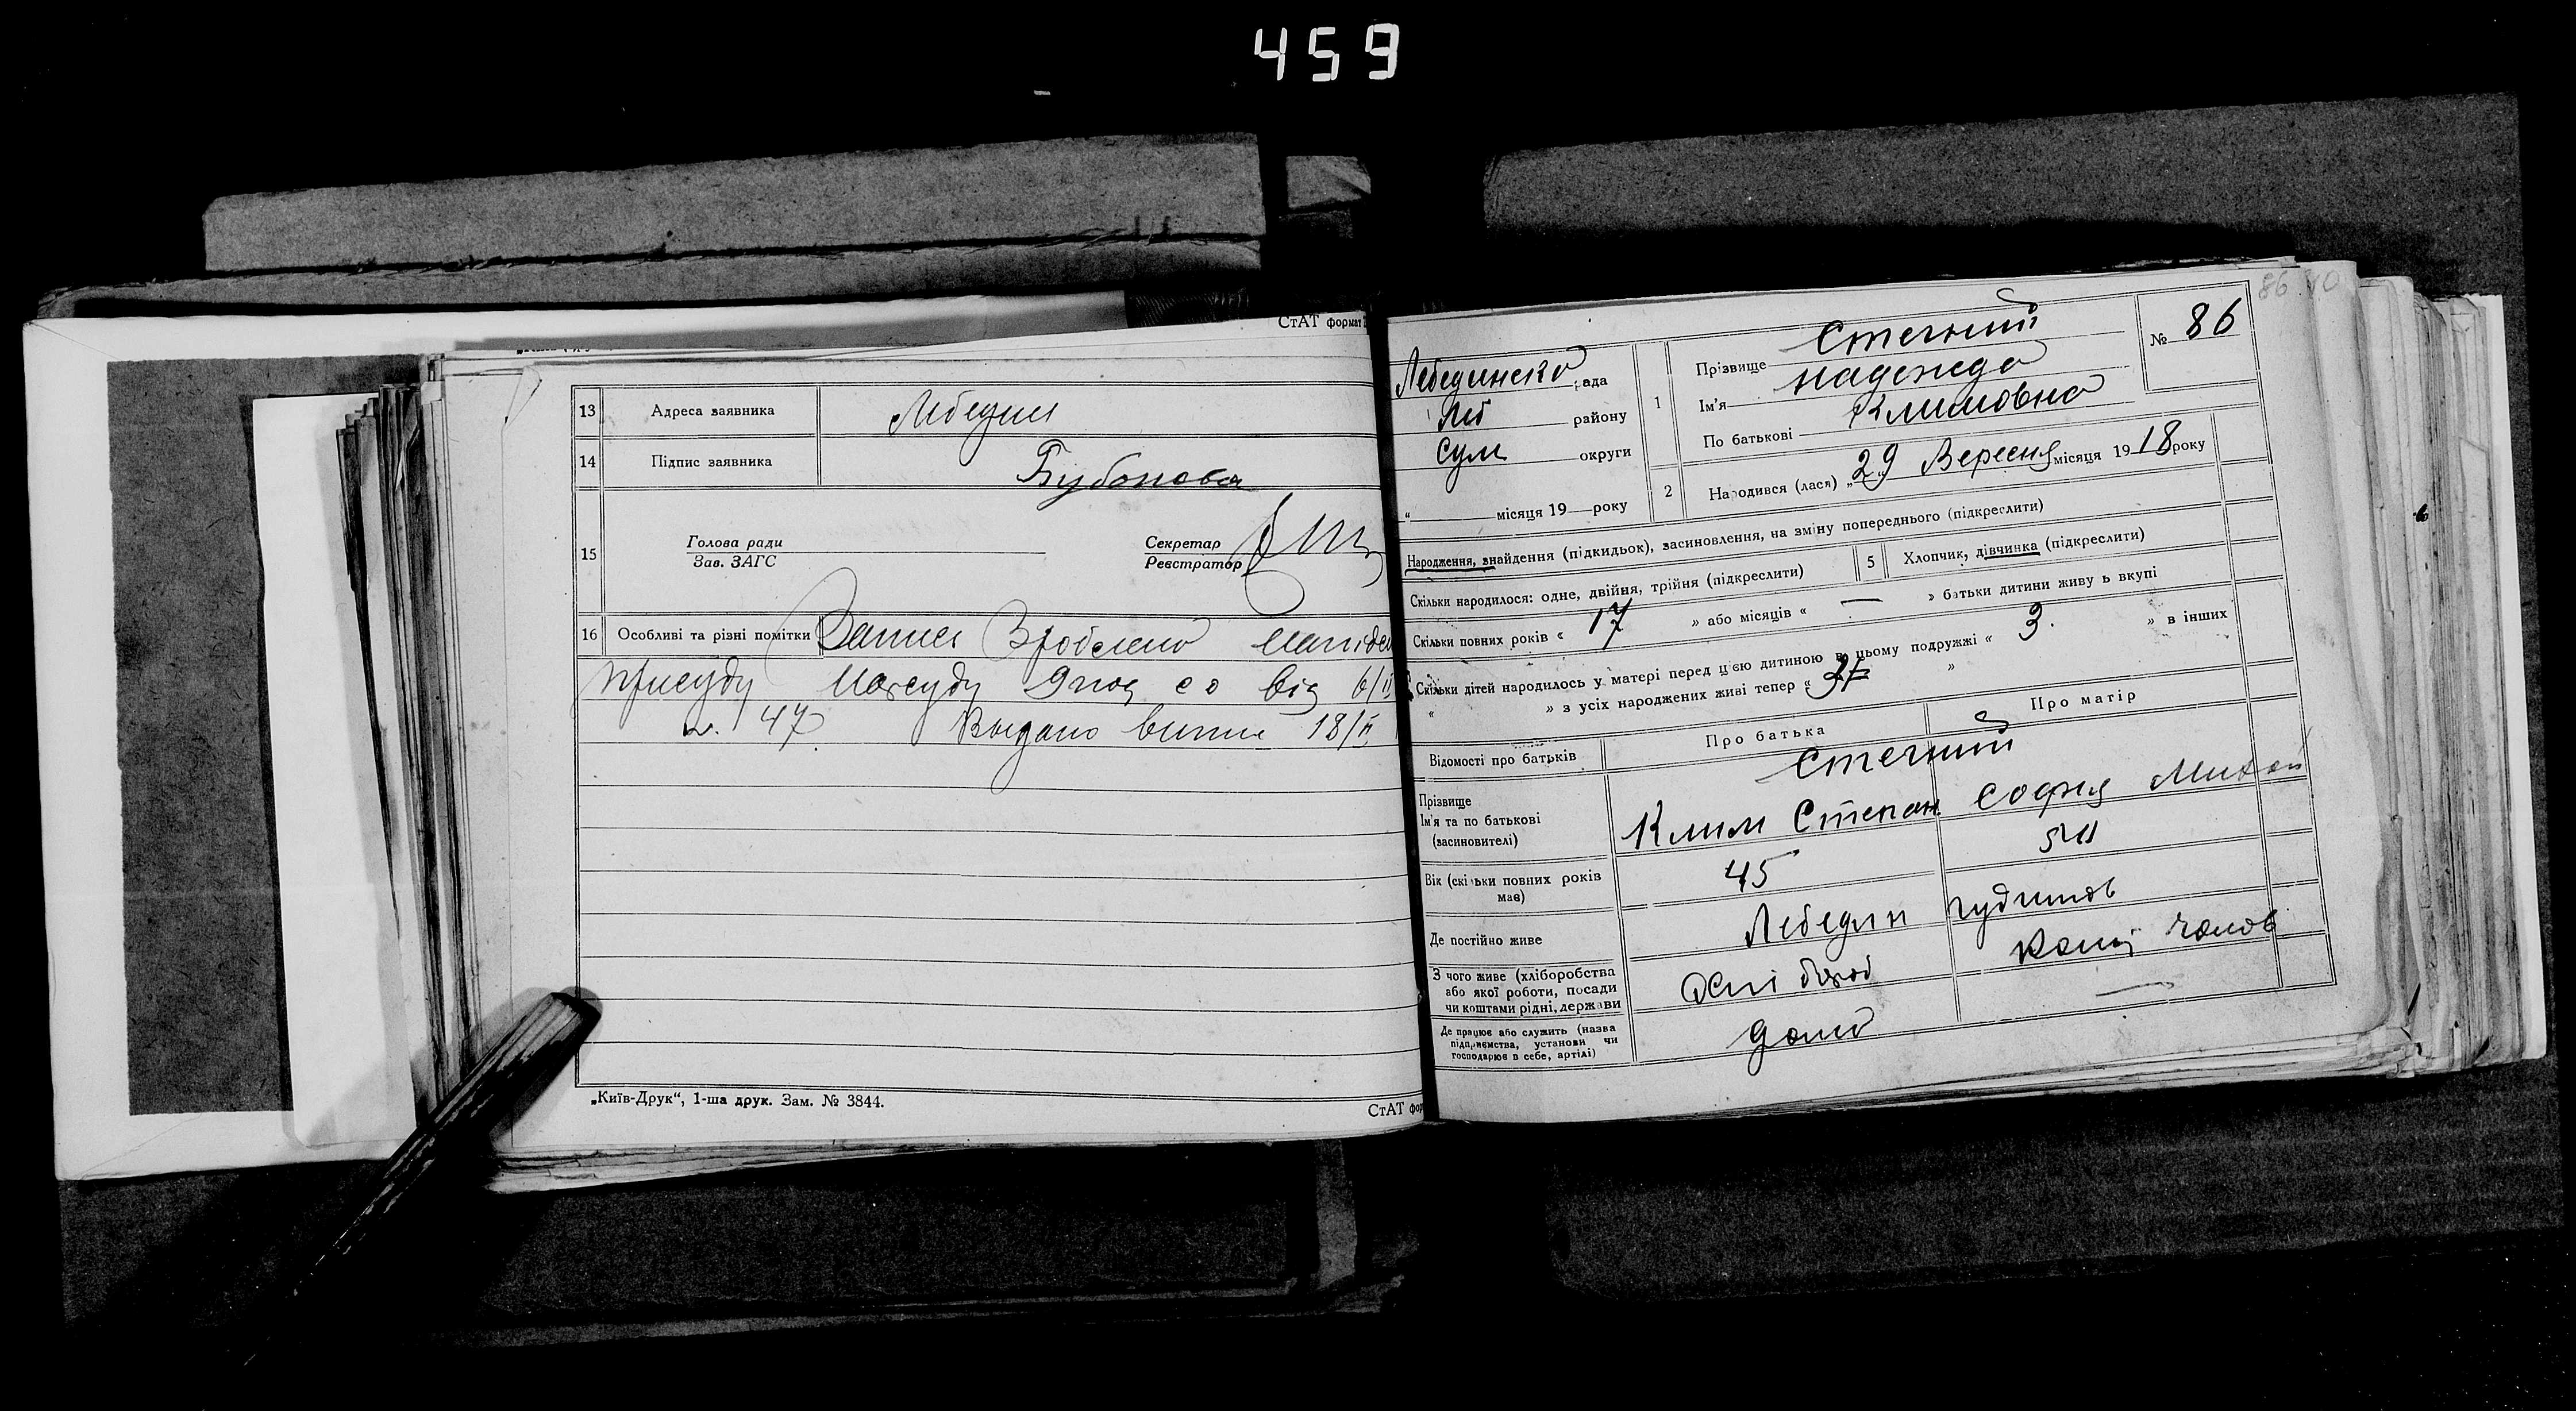 459
СтАТ формат
13 Адреса заявника Лебедин
14 Підпис заявника Бубонова
15 Голова ради
Зав. ЗАГС
Секретар
Реєстратор
16 Особливі та різні помітки Запис Зроблено на підст
присуду Нарсуду від 6/ІІ
47 Видано витяг 18/ІІ
„Київ-Друк“, 1-ша друк. Зам. № 3844.
СтАТ фор
86
Лебединсько рада
Леб району
Сум округи
“ місяця 19 року
1 Прізвище Стечний
Ім'я Надежда
По батькові Климовна
№ 86
2 Народився (лася) „29 Вересня місяця 1918 року
Народження, знайдення (підкидьок), засиновлення, на зміну попереднього (підкреслити)
Скільки народилося: одне, двійня, трійня (підкреслити) 5 Хлопчик, дівчинка (підкреслити)
Скільки повних років « 17 » або місяців « — » батьки дитини живуть вкупі
Скільки дітей народилось у матері перед цією дитиною в цьому подружжі « 3. » в інших
“ » з усіх народжених живі тепер « »
Відомості про батьків Про батька Про матір
Стечний
Прізвище
Ім'я та по батькові
(засиновителі)
Клим Степан Софія Михай
Вік (скільки повних років
має)
45
Де постійно живе Лебедин
З чого живе (хліборобства
або якої роботи, посади
чи коштами рідні, держави
Хлібороб Кошт чолов
Де працює або служить (назва
підприємства, установи чи
господарює в себе, артілі)
дома —